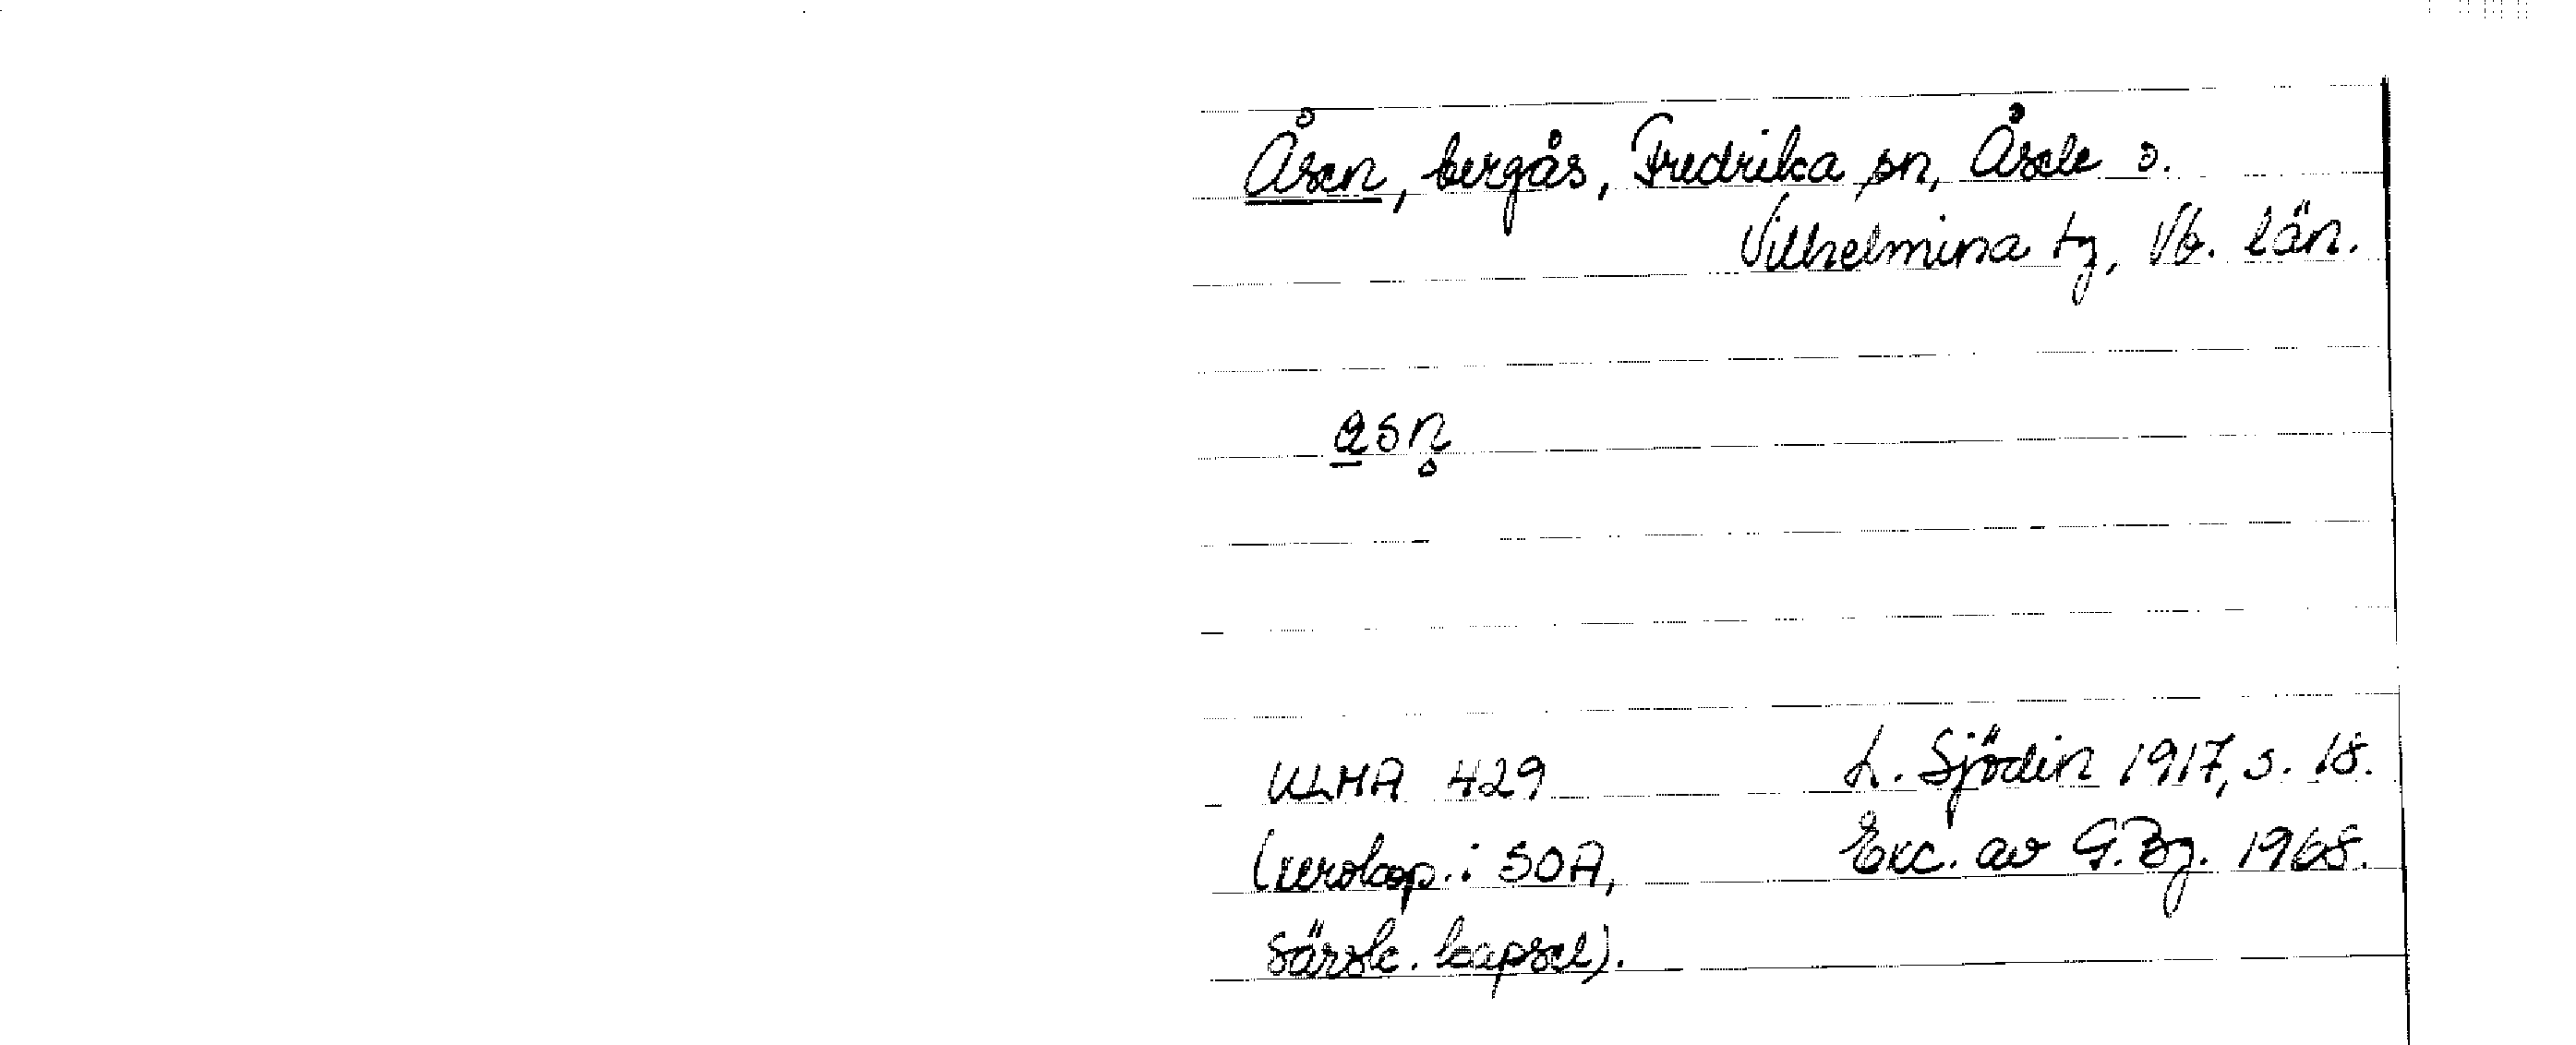 Åsen, bergås, Fredrika sn, Åsele o.
Vilhelmina tg, Vb. län.
åsn̥
ULMA 429
(xerokop. i SOA,
särsk. kapsel).
L. Sjödin 1917, s. 18.
Exc. av G. Bg. 1968.